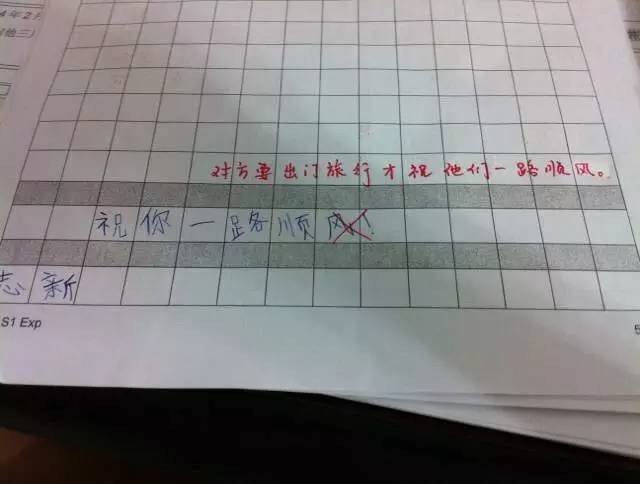 4年2月
对方要出门旅行才祝他们一路顺风。
祝你一路顺风!
志新
S1 Exp
5